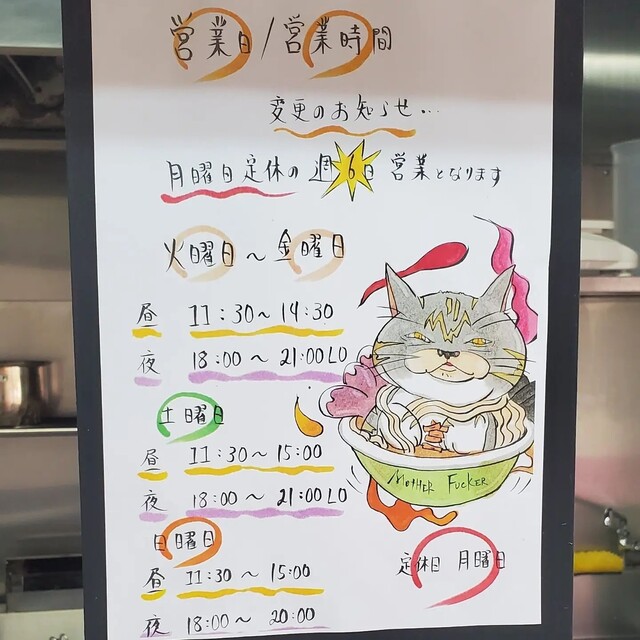 営業日/営業時間
変更のお知らせ...
月曜日定休の週6日営業となります
火曜日~金曜日
昼 11:30~14:30
夜 18:00~21:00LO
土曜日
昼 11:30~15:00
夜 18:00~21:00LO
日曜日
昼 11:30~15:00
夜 18:00~20:00
MOTHER FUCKER
定休日 月曜日